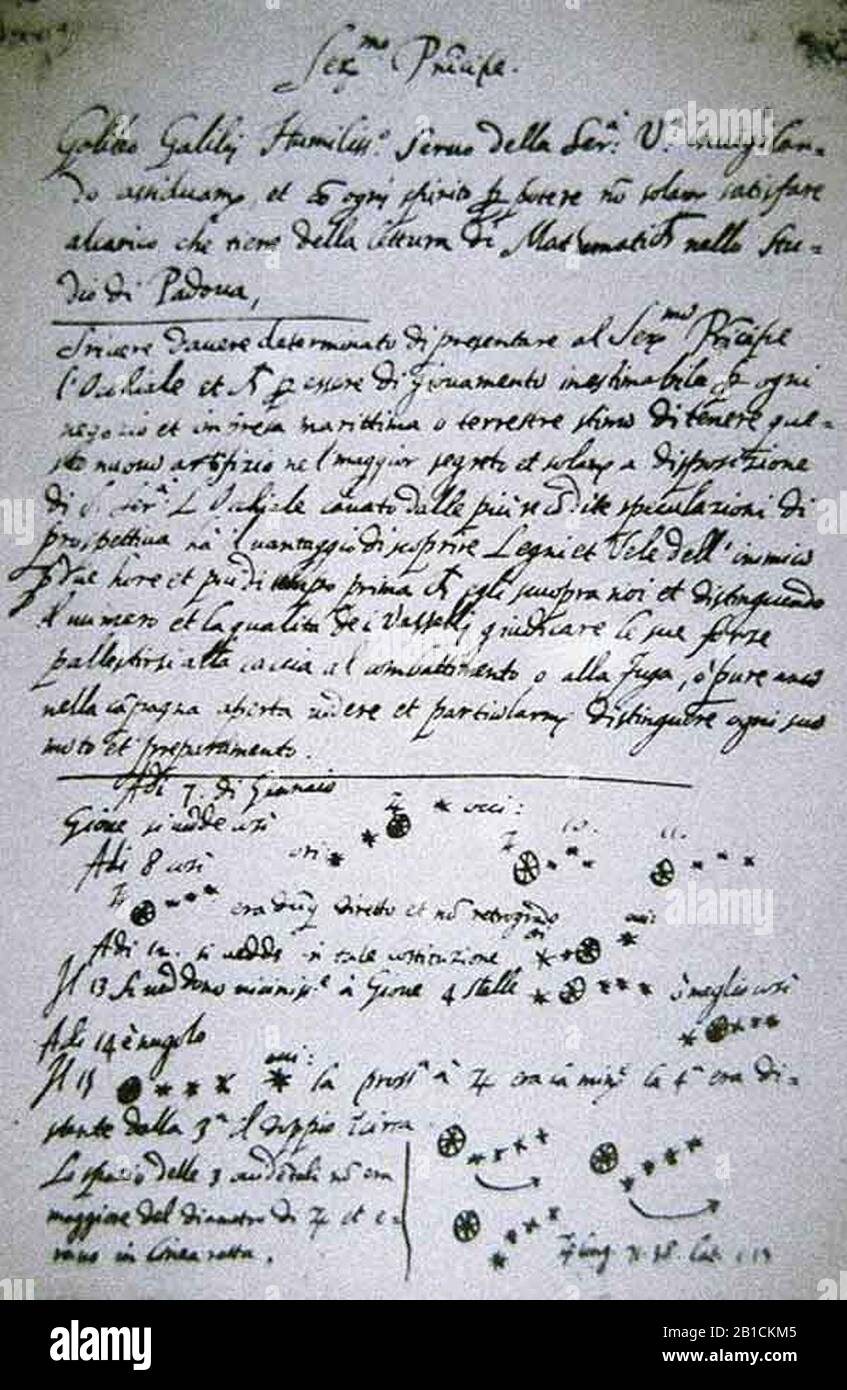 Ser.mo Principe.
Galileo Galilei Humiliss.o Servo della Ser.a V.a invigilan-
do assiduam.te, et cõ ogni spirito p potere nõ solam.te satisfare
alcarico che tiene della lettura di Mathematich nello Stu-
dio di Padova,
Scrivere davere determinato di presentare al Ser.mo Principe
l'Occhiale et ch p essere di giovamento inestimabile p ogni
negozio et impresa marittima o terrestre stimo di tenere que-
sto nuovo artifizio nel maggior segreto et solam.te a disposizione
di S. Ser.a L'Occhiale cavato dalle più recõdite speculazioni di
prospettiva ha il vantaggio di scoprire Legni et Vele dell'inimico
p due hore et piu di tempo prima ch egli scuopra noi et distinguendo
il numero et la qualità de i Vasselli giudicare le sue forze
pallestirsi alla caccia al combattimento o alla fuga, o pure anco
nella cãpagna aperta vedere et particolarm.te distinguere ogni suo
moto et preparamento.
Adi 7. di Gennaio
Gione si vedde così ♃ occi:
Adi 8 così ori ♃ 10. 11.
♃ era dũq directo et nõ retrogrado
Adi 12. si vedde in tale costituzione ori occi:
Il 13 si veddono vicinis.e à Giove 4 stelle ò meglio così
Adi 14 è nugolo
Il 15 occi: la pross.a à ♃ era la min.e la 4.a era di-
stante dalla 3.a il doppio circa
Lo spazio delle 3 occidentali nõ era
maggiore del diametro di ♃ et e-
rano in linea retta.
♃ long. 71.38 Lat. 1.13
alamy
alamy
2B1CKM5
www.alamy.com